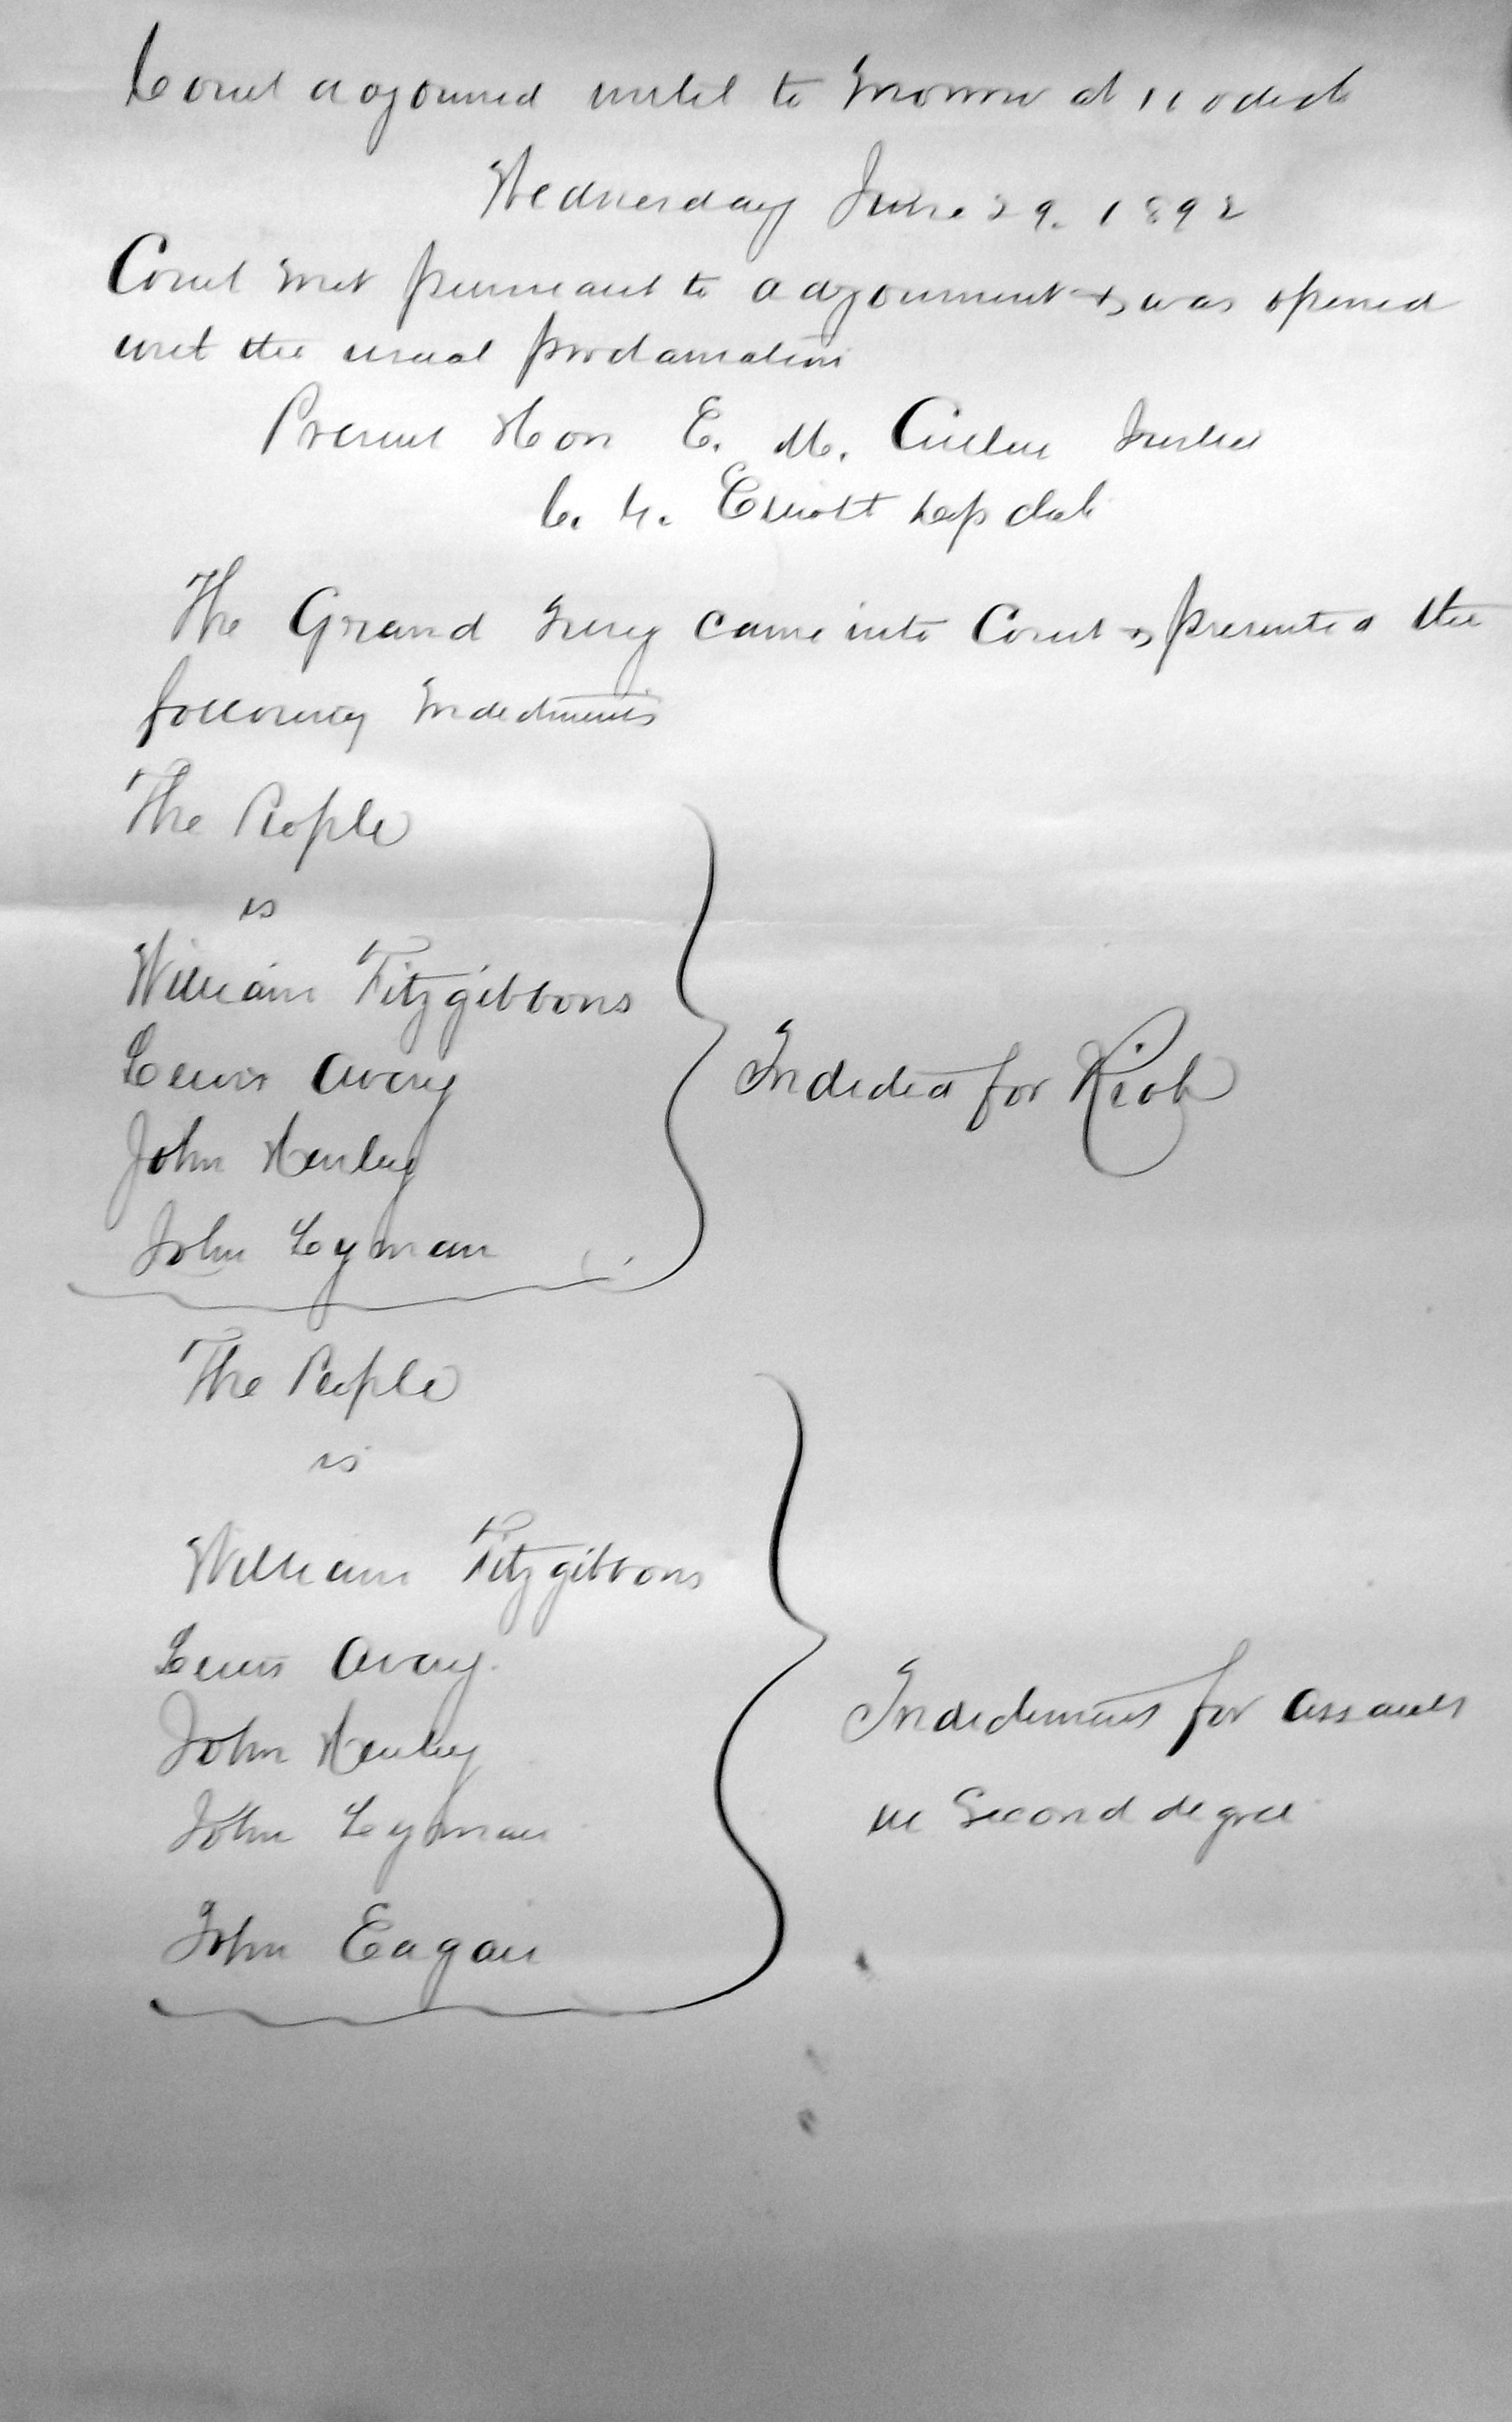 Court adjourned until to morrow at 11 oclock
Wednesday June 29. 1892
Court met pursuant to adjournment & was opened
with the usual proclamation
Present Hon E. M. Cullen Justice
C. H. Elliott Dep clerk
The Grand Jury came into Court & presented the
following Indictments
The People
vs
William Fitzgibbons
Lewis Avery
John Henley
John Lyman
Indicted for Riot
The People
vs
William Fitzgibbons
Lewis Avery.
John Henley
John Lyman
John Eagan
Indictment for Assault
in Second degree